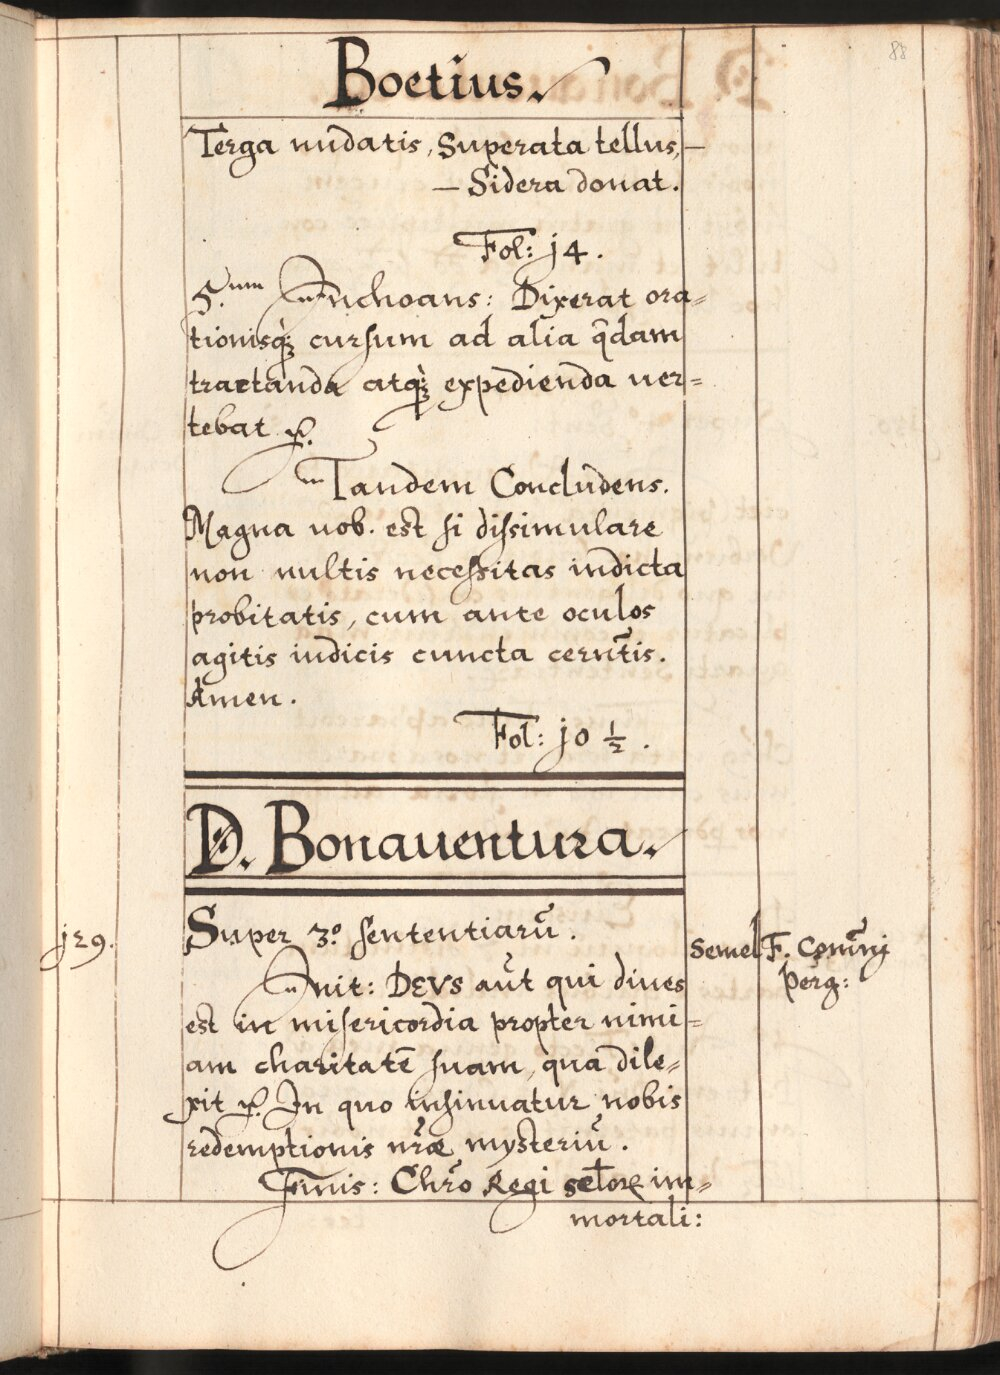 88
Boetius.
Terga nudatis, Superata tellus,
Sidera donat.
Fol: j4.
5.um Inchoans: Dixerat ora=
tionisq̃ȝ cursum ad alia q̃dam
tractanda atq̃ȝ expedienda ver=
tebat
Tandem Concludens.
Magna nob. est si dissimulare
non vultis necessitas indicta
probitatis, cum ante oculos
agitis iudicis cuncta cernẽtis.
Amen.
Fol: j0 ½.
D. Bonaventura.
j29.
Super 3.º sententiarũ.
semel F. Com̃nj
perg:
Init: DEVS aũt qui dives
est in misericordia propter nimi=
am charitatẽ suam, qua dile=
xit In quo insinuatur nobis
redemptionis nr̃æ mysteriũ.
Finis: Chr̃o Regi im=
mortali: